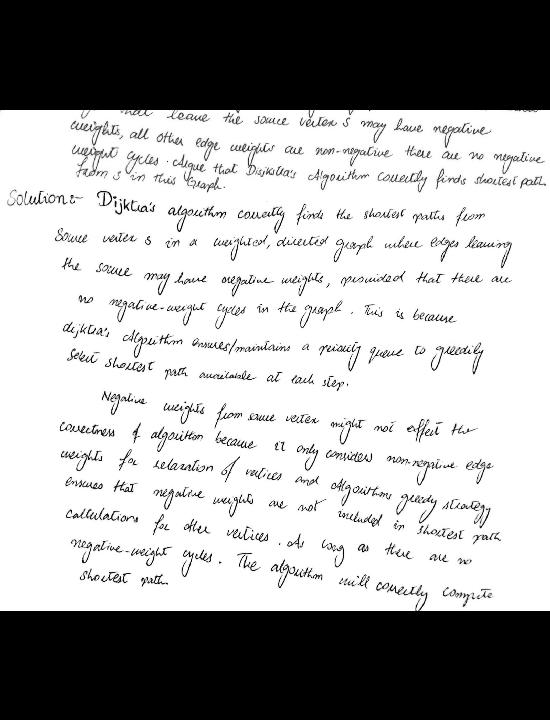 that leave the source vertex s may have negative
weights, all other edge weights are non-negative there are no negative
weight cycles. Argue that Dijkstra's Algorithm correctly finds shortest path
from s in this Graph.
Solution:- Dijktra's algorithm correctly finds the shortest paths from
source vertex s in a weighted, directed graph where edges leaving
the source may have negative weights, provided that there are
no negative-weight cycles in the graph. This is because
dijktra's Algorithm ensures/maintains a priority queue to greedily
select shortest path available at each step.
Negative weights from source vertex might not effect the
correctness of algorithm because it only considers non-negative edge
weights for relaxation of vertices and Algorithms greedy strategy
ensures that negative weights are not included in shortest path
calculations for other vertices. As long as there are no
negative-weight cycles. The algorithm will correctly compute
shortest path.